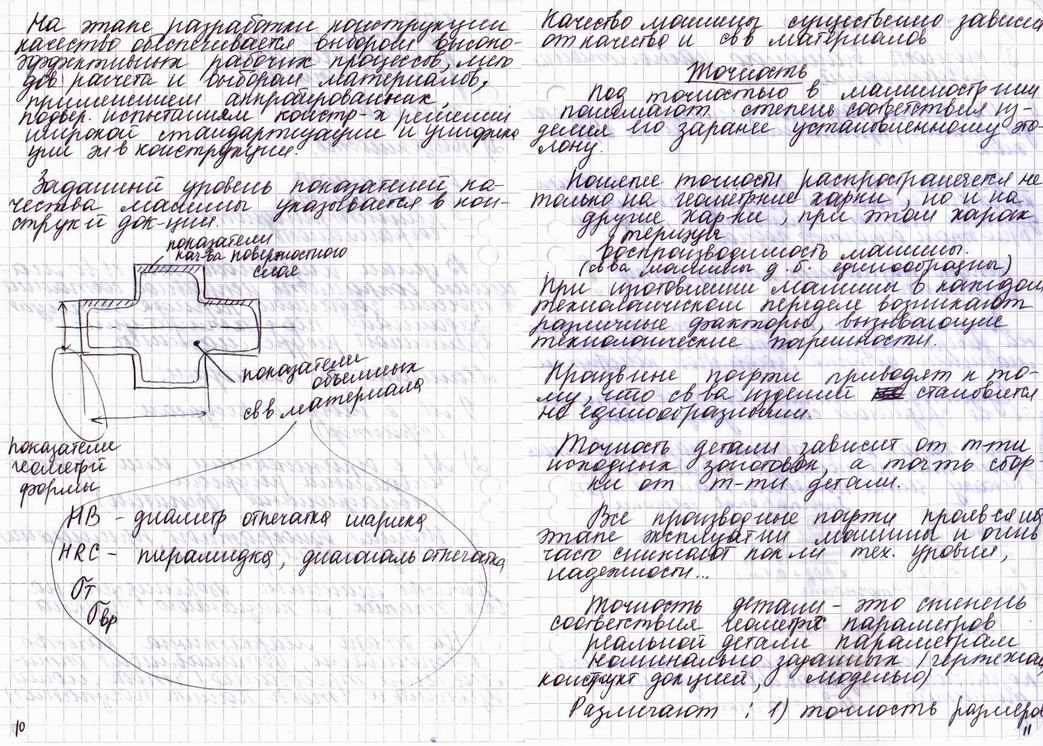 На этапе разработки конструкции
качество обеспечивается выбором высоко-
эффективных рабочих процессов, мето
дов расчета и выбором материалов,
применением аппробированных,
подвер. испытаниям констр-х решений
широкой стандартизации и унифика
ции эл-в конструкции.
Заданный уровень показателей ка-
чества машины указывается в кон-
струк й док-ции.
показатели
кач-ва поверхностного
слоя
показатели
объемных
св в материала
показатели
геометрй
формы
HB - диаметр отпечатка шарика
HRC - пирамидка, диагональ отпечатка
σт
σвр
10
Качество машины существенно зависи
от качества и св в материалов
Точность
Под точностью в машиностр-нии
понимают степень соответствия из-
делия его заранее установленному эта-
лону.
Понятие точности распространяется не
только на геометрич харки, но и на
другие хар-ки, при этом харак
теризуя
воспроизводимость машины.
(св ва машины д. б. единообразны)
При изготовлении машины в каждом
технологическом переделе возникают
различные факторы, вызывающие
технологические погрешности.
Произвные погрти приводят к то-
му, что св ва изделий становятся
не единообразными.
Точность детали зависит от т-ти
исходных заготовок, а точть сбор-
ки от т-ти детали.
Все производные погрти проявся на
этапе эксплуатции машины и очень
часто снижают пок ли тех. уровня,
надежности...
Точность детали - это степень
соответствия геометрх параметров
реальной детали параметрам
номинально заданных (чертежом,
конструкт докцией, моделью)
Различают : 1) точность размеров
11